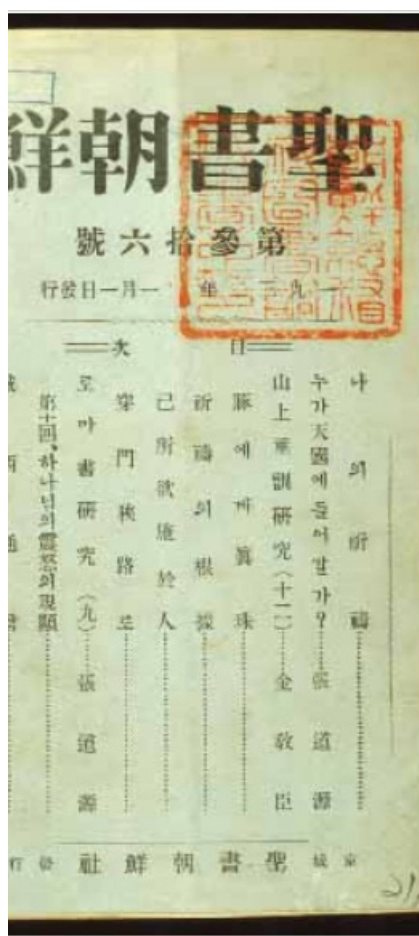 聖書朝鮮
第參拾六號
年 一月一日發行
目次
나의祈禱
누가天國에들어갈가?……張道源
山上垂訓研究(十一)……金敎臣
豚에게眞珠
祈禱의根據
己所欲施於人
窄門狹路로
로마書研究(九)……張道源
第十回、하나님의震怒의現顯
京城 聖書朝鮮社 發行
21